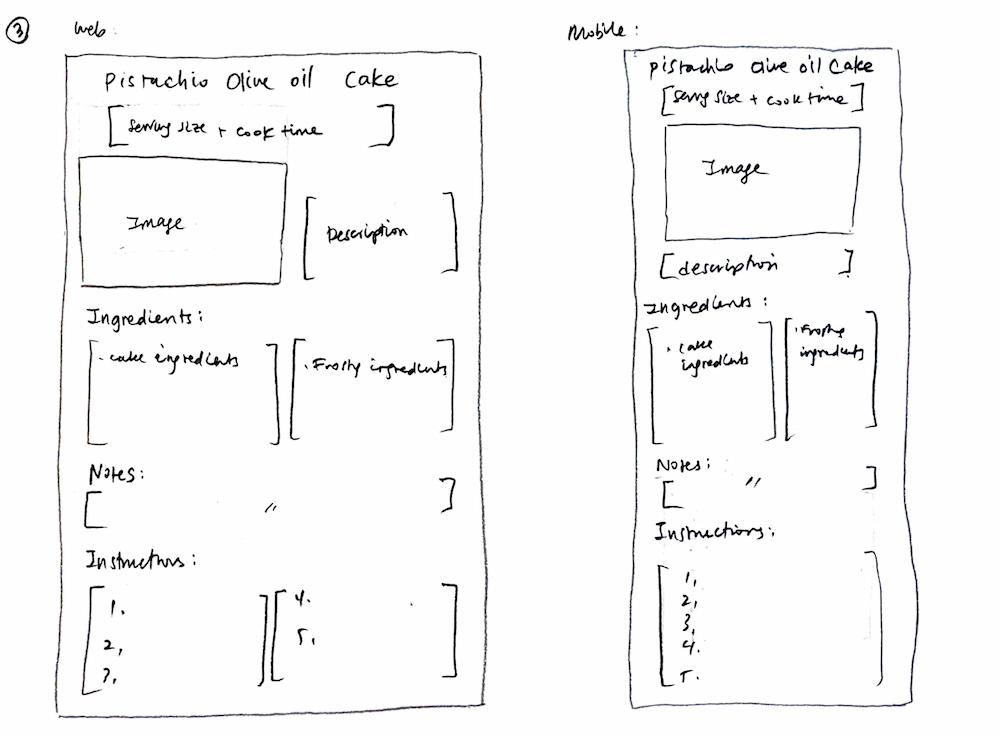 3
Web:
Pistachio Olive oil Cake
[serving size + cook time]
Image
[Description]
Ingredients:
[. cake ingredients]
[. Frosty ingredients]
Notes:
[ 〃 ]
Instructions:
[1.
2,
3,]
[4.
5,]
Mobile:
Pistachio Olive oil Cake
[serving size + cook time]
Image
[description]
Ingredients:
[. cake
ingredients]
[. Frosty
ingredients]
Notes:
[ 〃 ]
Instructions:
[1,
2,
3,
4.
5.]